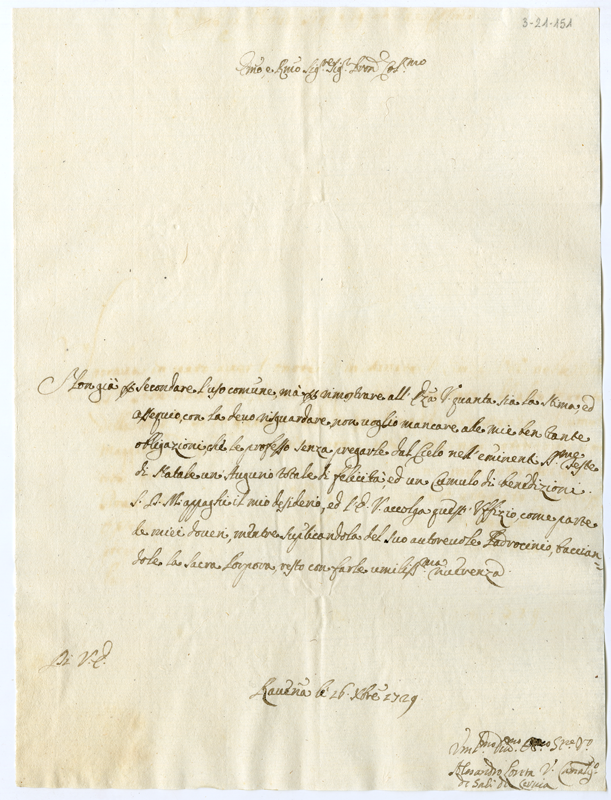 3-21-151
Emo e Rmo Sigr Sigr Pron Colmo
Non già p secondare l'uso comune, mà p rimostrare all' Eza V. quanta sia la stima, ed
ossequio, con la devo risguardare, non voglio mancare alle mie ben tante
obligazioni, che le professo senza pregarle dal Cielo nell' eminenti Sme Feste
di Natale un Augurio totale di felicità, ed un Cumulo di benedizioni.
S. D. M. appaghi il mio desiderio, ed l'E. V. accolga quest' Uffizio, come parte
de miei doveri, mentre suplicandola del suo autorevole Padrocinio, baccian=
dole la Sacra Porpora, resto con farle umilissma riverenza.
Di V. E.
Ravenna li 16 Xbre 1729
Alessandro
di Sali di Cervia